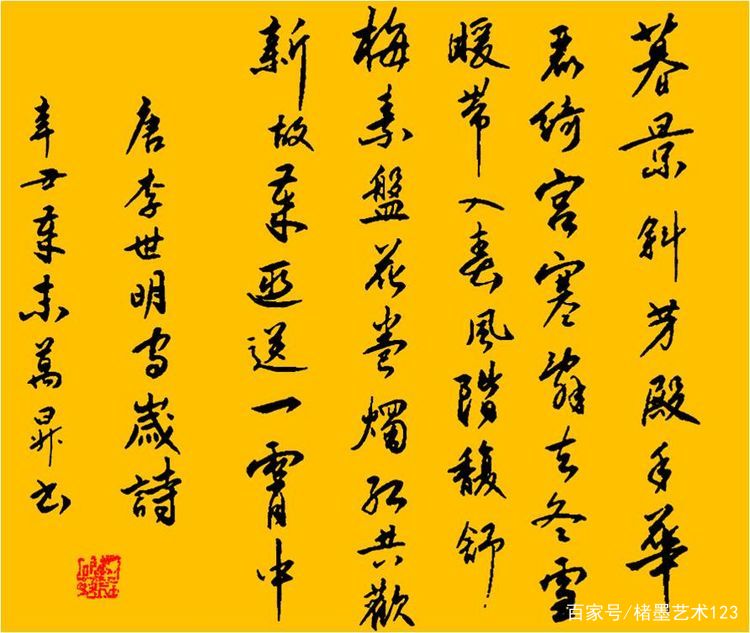 暮景斜芳殿年華
麗綺宮寒辭去冬雪
暖帶入春風階馥舒
梅素盤花卷燭紅共歡
新故年迎送一霄中
唐李世明守歲詩
辛丑年末萬昇书
百家号/楮墨艺术123